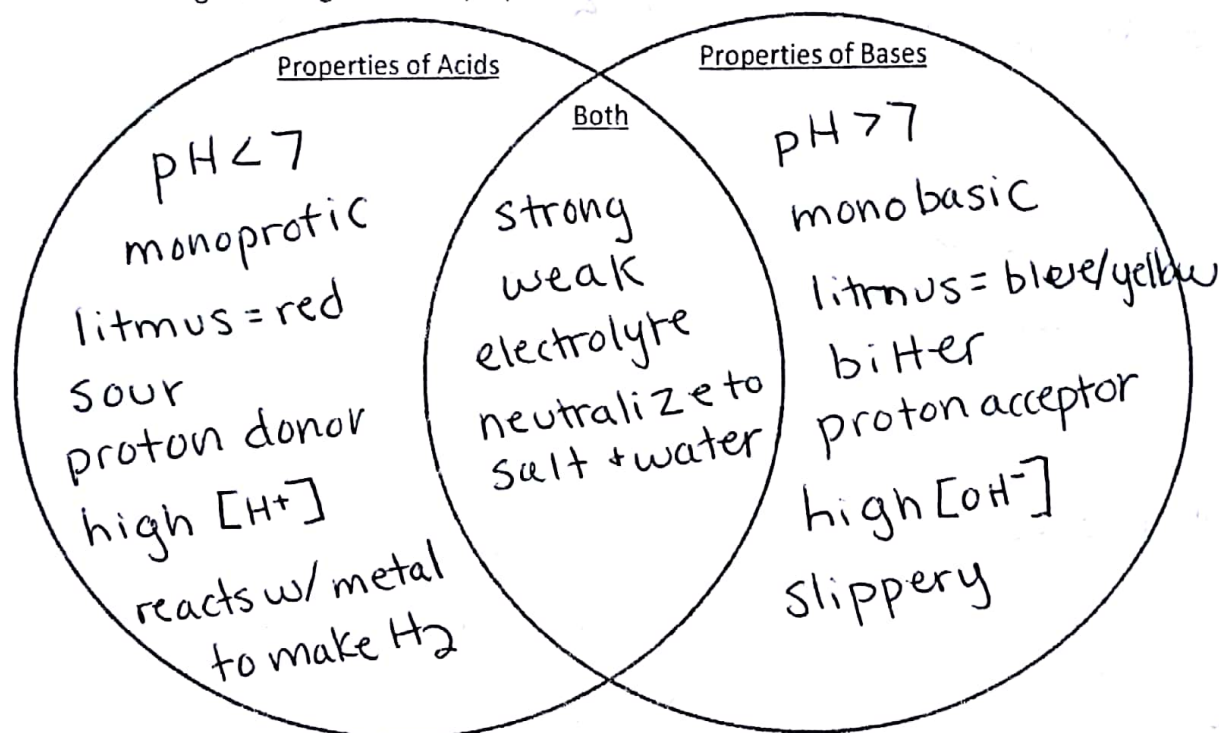 Properties of Acids
pH < 7
monoprotic
litmus = red
sour
proton donor
high [H+]
reacts w/ metal
to make H2
Both
strong
weak
electrolyte
neutralize to
salt + water
Properties of Bases
pH > 7
monobasic
litmus = blue/yellow
bitter
proton acceptor
high [OH⁻]
slippery